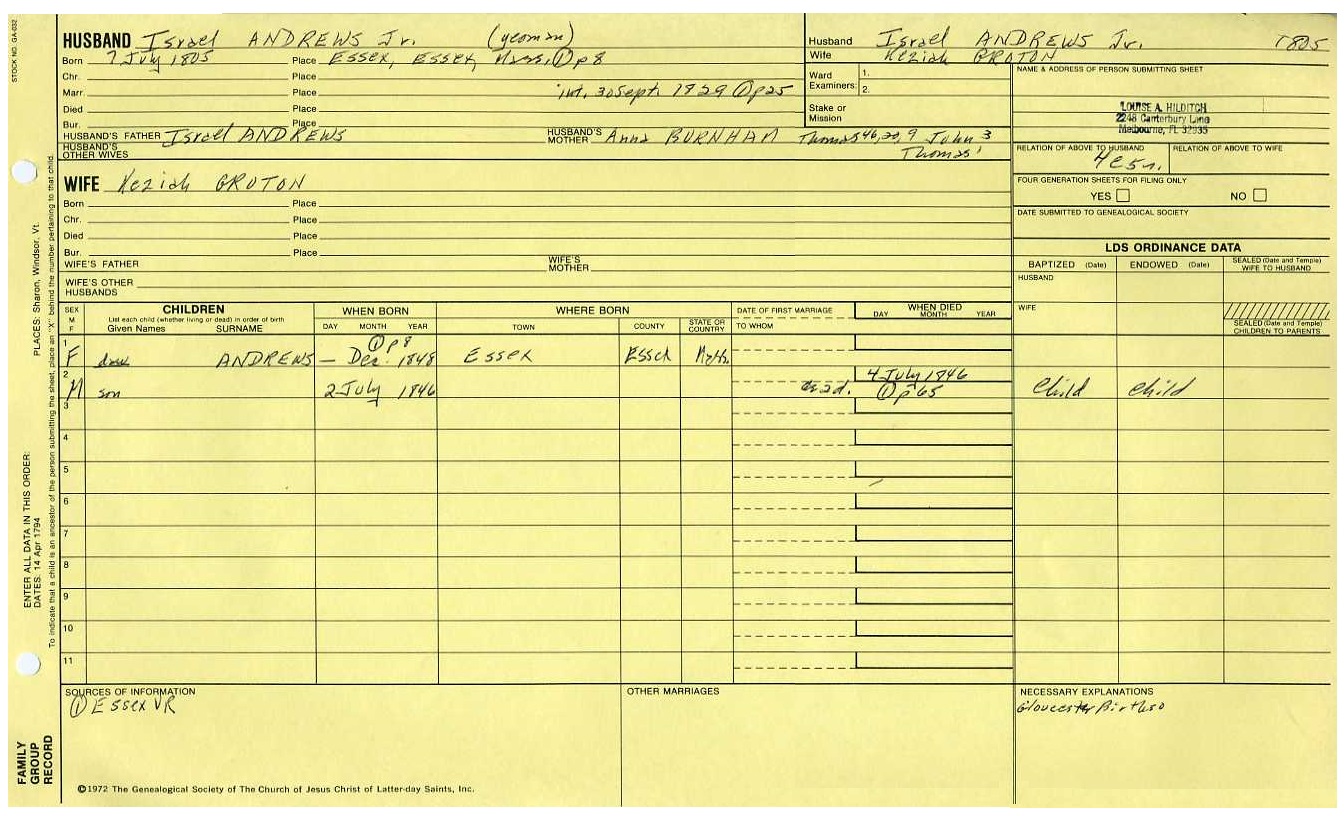 STOCK NO. GA-032
HUSBAND Israel ANDREWS Jr. (yeoman)
Born 7 July 1805 Place Essex, Essex, Mass, ① p 8
Chr. Place
Marr. Place int. 30 Sept. 1829 ① p 25
Died Place
Bur. Place
HUSBAND'S FATHER Israel ANDREWS HUSBAND'S MOTHER Anna BURNHAM Thomas 46,20,9 John 3
HUSBAND'S OTHER WIVES Thomas 1
Husband Israel ANDREWS Jr. 1805
Wife Keziah GROTON
Ward Examiners: 1.
2.
Stake or Mission
NAME & ADDRESS OF PERSON SUBMITTING SHEET
LOUISE A. HILDITCH
2248 Canterbury Lane
Melbourne, FL 32935
RELATION OF ABOVE TO HUSBAND RELATION OF ABOVE TO WIFE
FOUR GENERATION SHEETS FOR FILING ONLY
YES NO
DATE SUBMITTED TO GENEALOGICAL SOCIETY
WIFE Keziah GROTON
Born Place
Chr. Place
Died Place
Bur. Place
WIFE'S FATHER WIFE'S MOTHER
WIFE'S OTHER HUSBANDS
LDS ORDINANCE DATA
BAPTIZED (Date) ENDOWED (Date) SEALED (Date and Temple) WIFE TO HUSBAND
HUSBAND
WIFE
SEALED (Date and Temple) CHILDREN TO PARENTS
SEX M F CHILDREN WHEN BORN WHERE BORN DATE OF FIRST MARRIAGE WHEN DIED
List each child (whether living or dead) in order of birth
Given Names SURNAME DAY MONTH YEAR TOWN COUNTY STATE OR COUNTRY TO WHOM DAY MONTH YEAR
① p 8
1 F dau ANDREWS — Dec. 1848 Essex Essex
4 July 1846
2 M son 2 July 1846 ① p 65 Child Child
3
4
5
6
7
8
9
10
11
SOURCES OF INFORMATION
① Essex VR
OTHER MARRIAGES
NECESSARY EXPLANATIONS
Gloucester
©1972 The Genealogical Society of The Church of Jesus Christ of Latter-day Saints, Inc.
FAMILY GROUP RECORD
ENTER ALL DATA IN THIS ORDER:
DATES: 14 Apr 1794 PLACES: Sharon, Windsor, Vt.
To indicate that a child is an ancestor of the person submitting the sheet, place an "X" behind the number pertaining to that child.